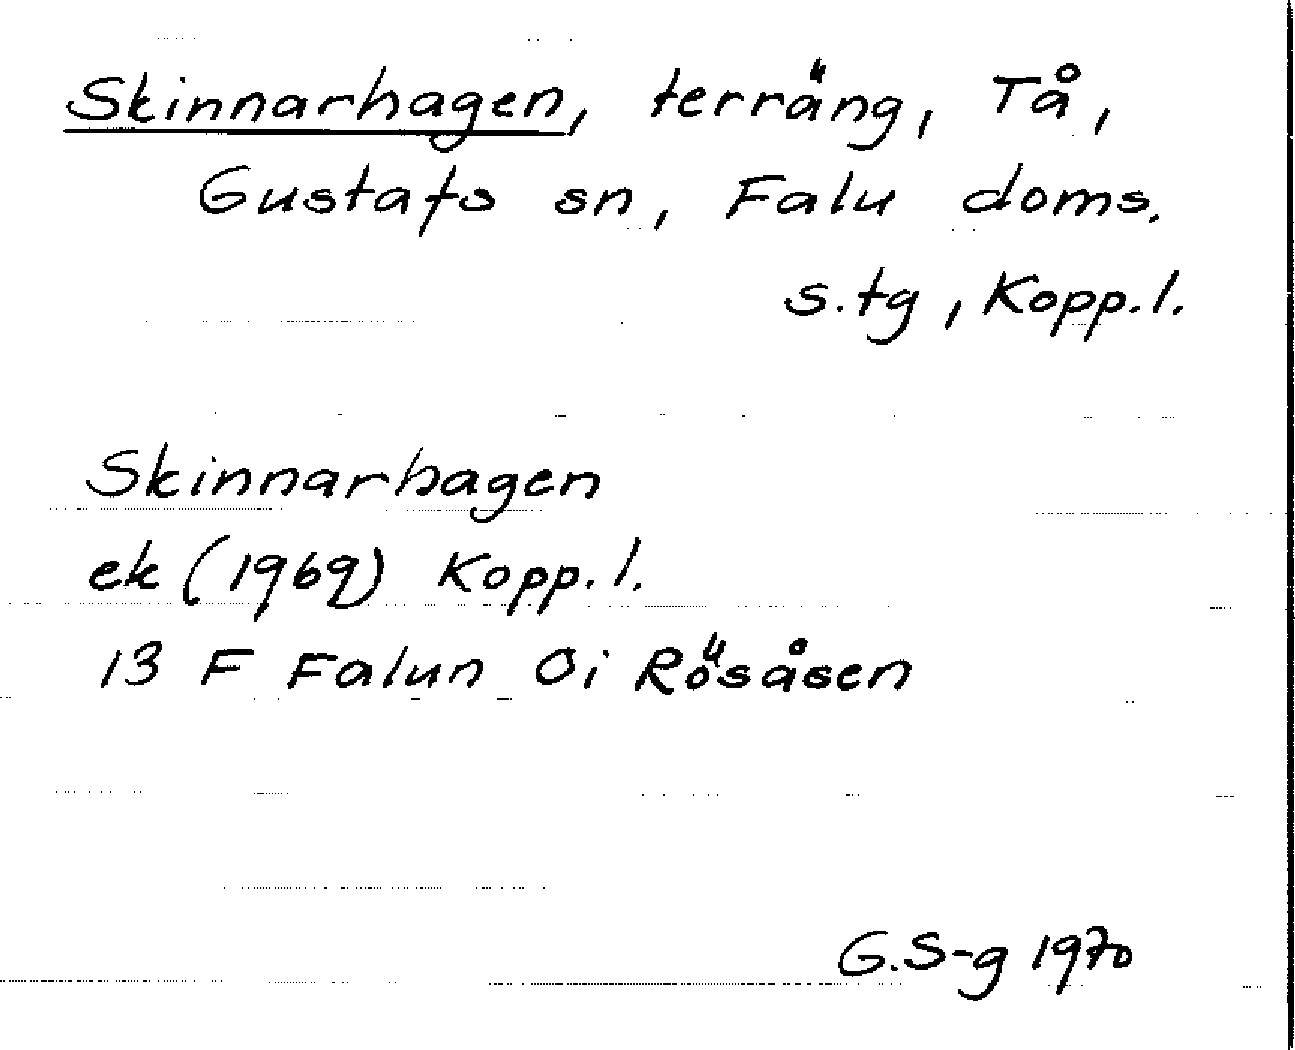 Skinnarhagen, terräng, Tå,
Gustafs sn, Falu doms.
s.tg, Kopp.l.
Skinnarhagen
ek (1969) Kopp.l.
13 F Falun 0i Rösåsen
G.S-g 1970